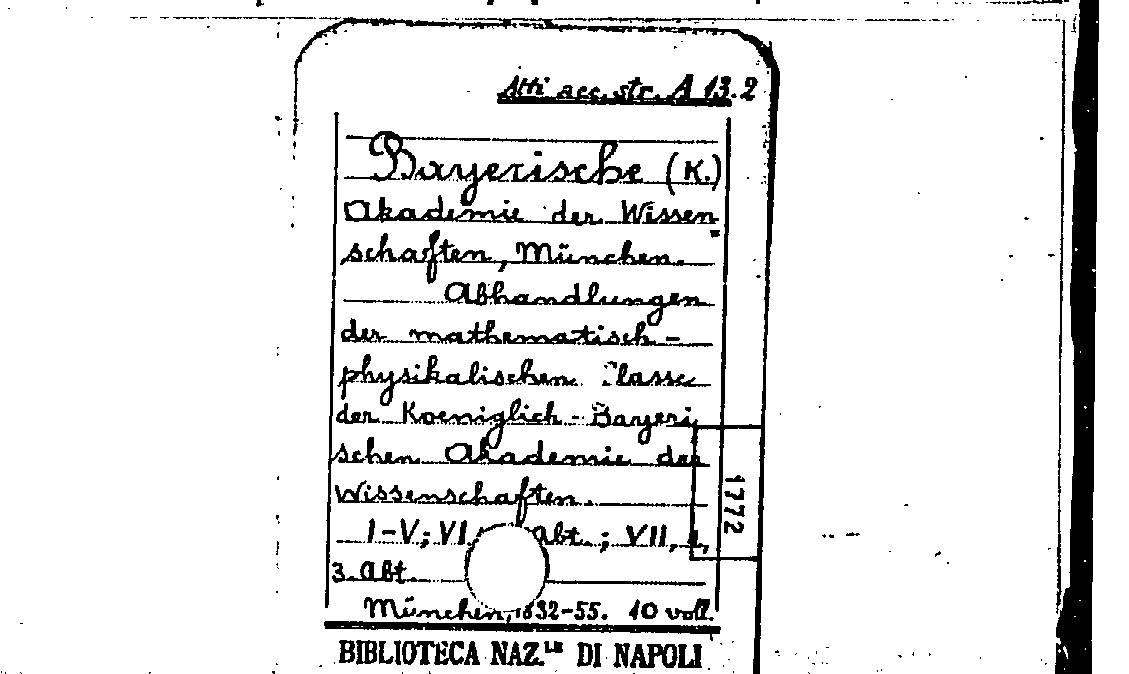 Atti acc. str. A 13.2
Bayerische (K.)
Akademie der Wissen=
schaften, München.
Abhandlungen
der mathematisch-
physikalischen Classe
der Koeniglich-Bayeri
schen Akademie der
Wissenschaften.
I-V; VI. Abt.; VII, 1,
3. Abt.
München, 1832-55. 10 voll.
BIBLIOTECA NAZ.LE DI NAPOLI
1772